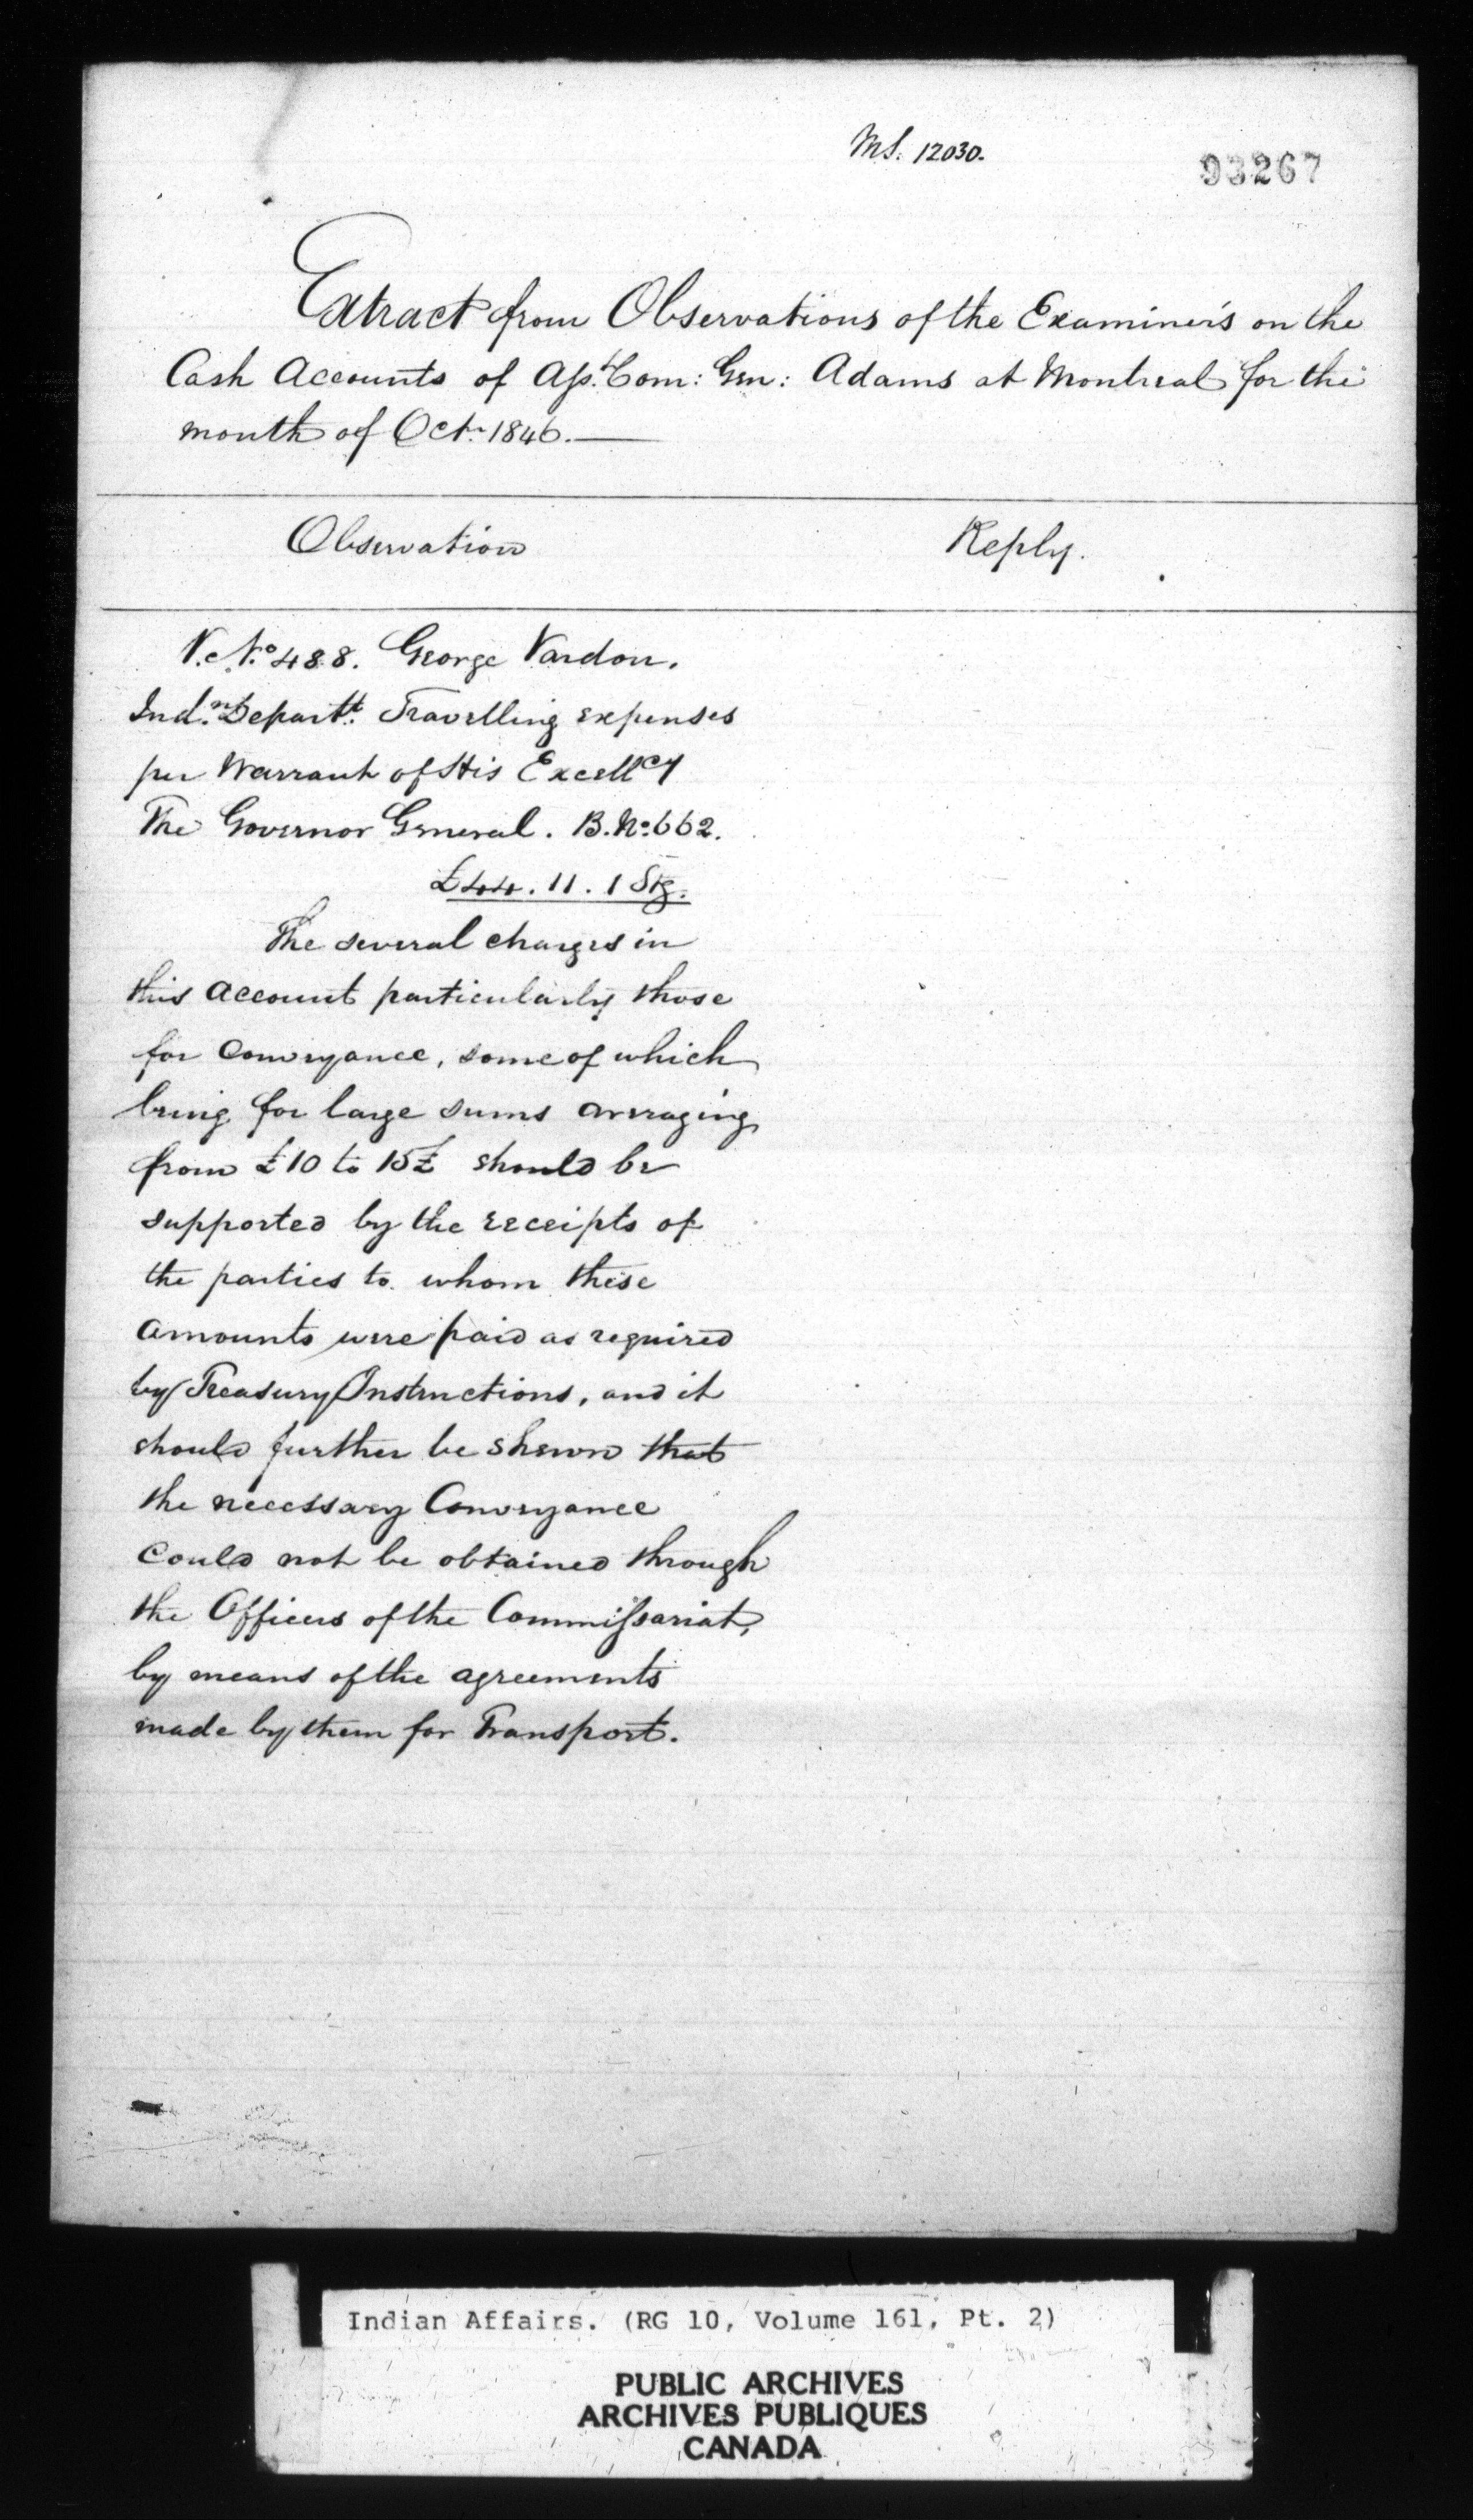 MS. 12030.
93267
Extract from Observations of the Examiners on the
Cash Accounts of Asst. Com: Gen: Adams at Montreal for the
month of Octr. 1846.
Observation
Reply.
V. No. 488. George Vardon.
Indn. Departt. Travelling expenses
per Warrant of His Excellcy
The Governor General. B. No. 662.
£44. 11. 1 Stg.
The several charges in
this account particularly those
for Conveyance, some of which
being for large sums averaging
from £10 to 15£ should be
supported by the receipts of
the parties to whom these
amounts were paid as required
by Treasury Instructions, and it
should further be shewn that
the necessary Conveyance
could not be obtained through
the Officers of the Commissariat,
by means of the agreements
made by them for Transport.
Indian Affairs. (RG 10, Volume 161, Pt. 2)
PUBLIC ARCHIVES
ARCHIVES PUBLIQUES
CANADA